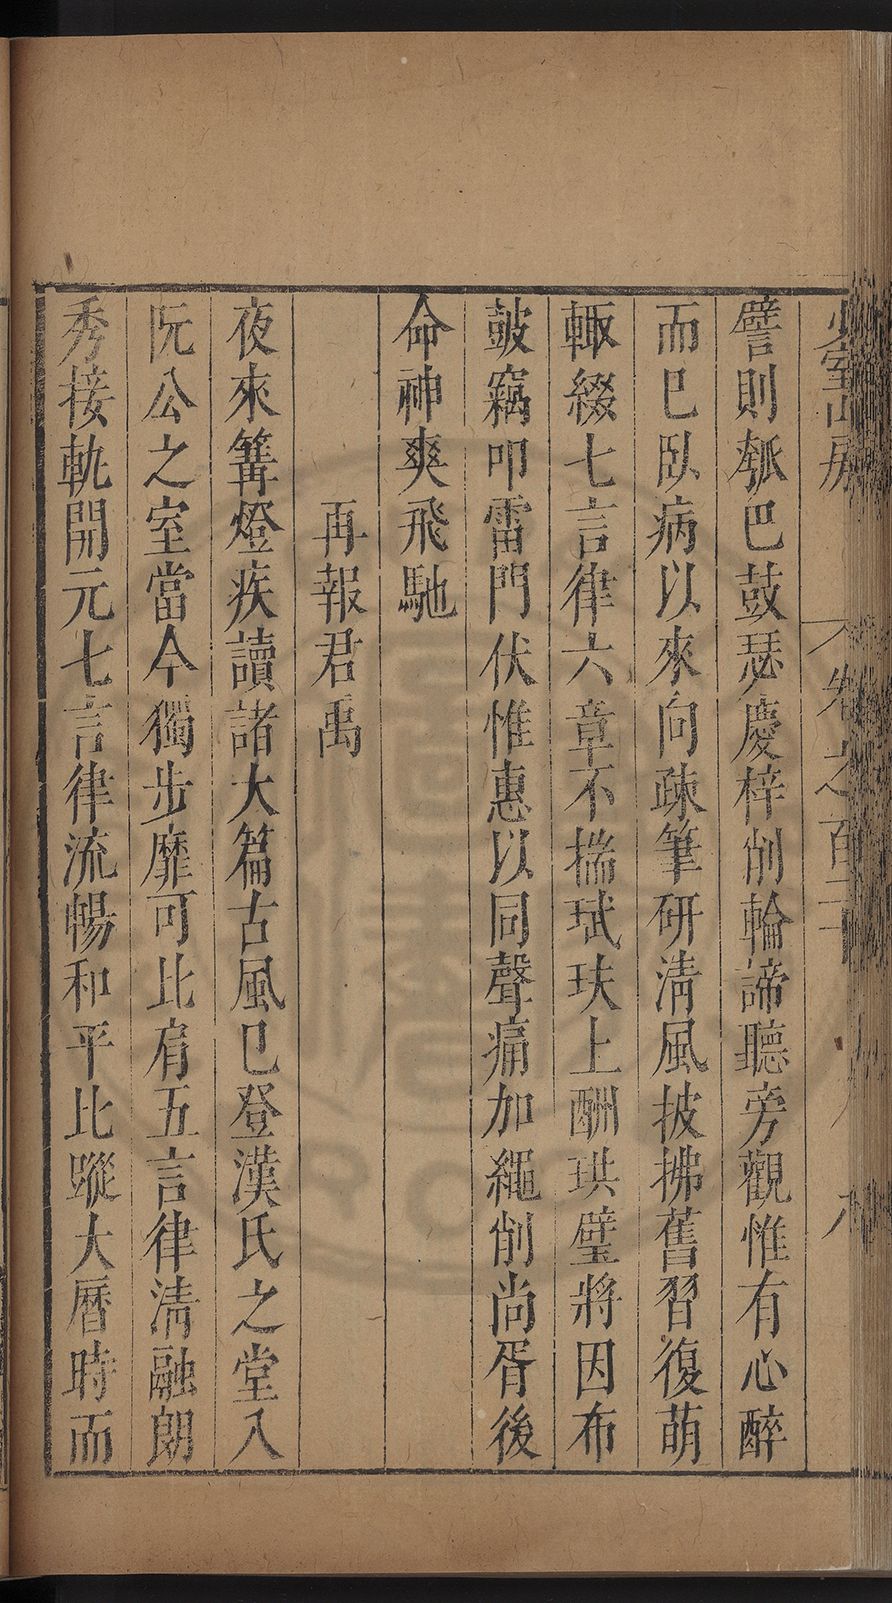 譬則瓠巴鼓瑟慶梓削輪諦聽旁觀惟有心醉
而巳臥病以來向疎筆研清風披拂舊習復萌
輙綴七言律六章不揣珷玞上酬珙璧將因布
皷竊叩雷門伏惟惠以同聲痛加繩削尚胥後
命神爽飛馳
再報君禹
夜來篝燈疾讀諸大篇古風巳登漢氏之堂入
阮公之室當今獨步靡可比肩五言律清融朗
秀接軌開元七言律流暢和平比蹤大曆時而